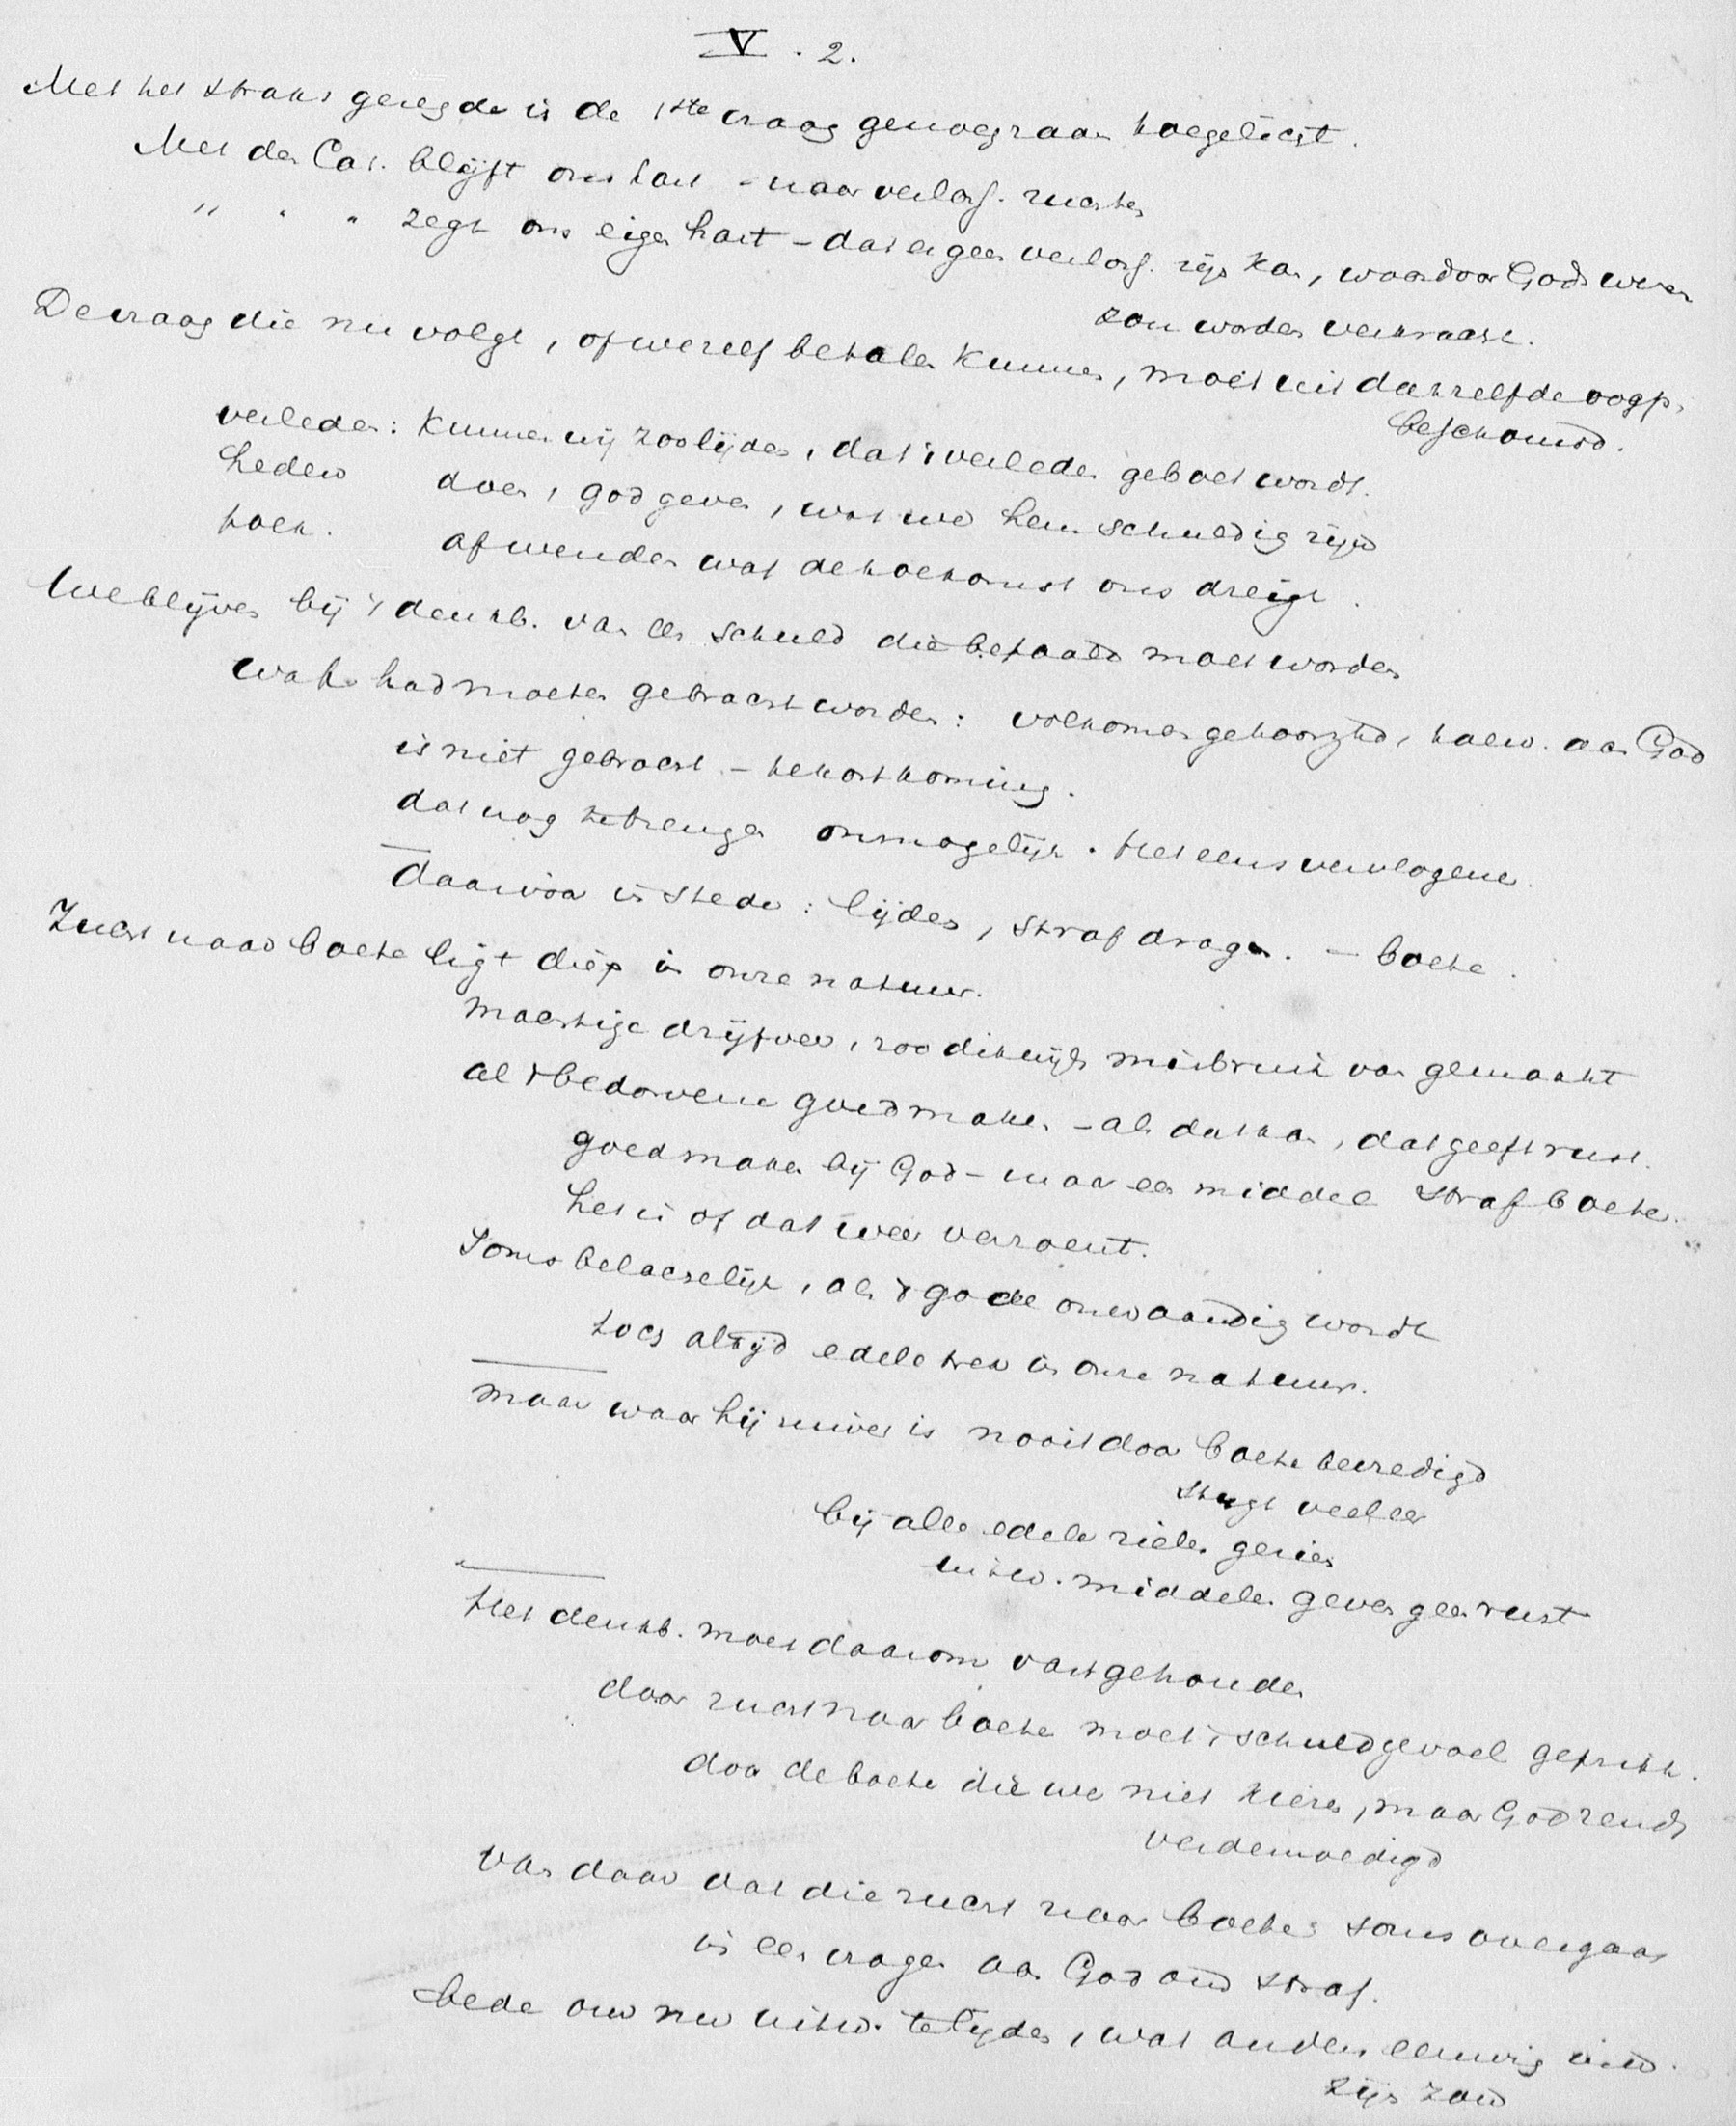 V . 2.
Met het straks gezegde is de 1ste vraag genoegzaam toegelicht.
Met den Cat. blijft ons hart - naar verlossg. zuchten
" " " zegt ons eigen hart - dat er geen verlossg. zijn kan, waardoor Gods wezen
zou worden verkracht.
De vraag die nu volgt, of we zelf betalen kunnen, moet uit datzelfde oogp.
beschouwd.
verleden: Kunnen wij zoo lijden, dat 't verleden geboet wordt.
heden doen, God geven, wat we hem schuldig zijn
toek. afwenden wat de toekomst ons dreigt.
We blijven bij 't denkb. van een schuld die betaald moet worden
wat had moeten gebracht worden: volkomen gehoorzhd, toew. aan God
is niet gebracht - tekortkoming.
dat nog te brengen onmogelijk. Het eens vervlogene.
daarvoor in stede: lijden, straf dragen. - boete.
Zucht naar boete ligt diep in onze natuur.
machtige drijfveer, zoo dikwijls misbruik van gemaakt
al 't bedorvene goedmaken - als dat kan, dat geeft rust.
goedmaken bij God - maar een middel straf boete.
het is of dat weer verzoent.
Soms belachelijk, als 't gode onwaardig wordt
toch altijd edele trek in onze natuur.
maar waar hij zuiver is nooit door boete bevredigd
stijgt veeleer
bij alle edele zielen gezien
uitw. middelen geven geen rust
Het denkb. moet daarom vastgehouden
door zucht naar boete moet 't schuldgevoel geprikk.
door de boete die we niet kiezen, maar God zendt
verdemoedigd
van daar dat die zucht naar boete soms overgaat
in een vragen aan God om straf.
bede om nu uitw. te lijden, wat anders eeuwig inw.
zijn zou